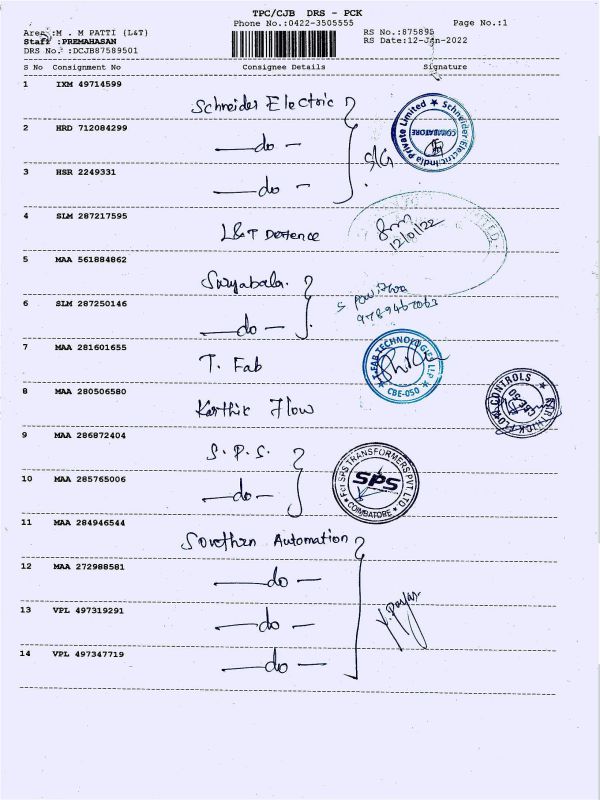 TPC/CJB DRS - PCK
Phone No.:0422-3505555 Page No.:1
Area :M . M PATTI (L&T) RS No.:875895
Staff :PREMAHASAN RS Date:12-Jan-2022
DRS No. :DCJB87589501
S No Consignment No Consignee Details Signature
1 IXM 49714599
Schneider Electric
Schneider Electric India Private Limited
COIMBATORE
2 HRD 712084299
do
3 HSR 2249331
do
4 SLM 287217595
L&T Defence
12/01/22
5 MAA 561884862
Suryabala.
6 SLM 287250146
do
9789467063
7 MAA 281601655
T. Fab
T-FAB TECHNOLOGIES LLP
CBE-050
8 MAA 280506580
Karthic Flow
KARTHICK FLOW CONTROLS
9 MAA 286872404
S. P. S.
10 MAA 285765006
do
For SPS TRANSFORMERS PVT LTD
SPS
COIMBATORE
11 MAA 284946544
Sovethen Automation
12 MAA 272988581
do
13 VPL 497319291
do
14 VPL 497347719
do